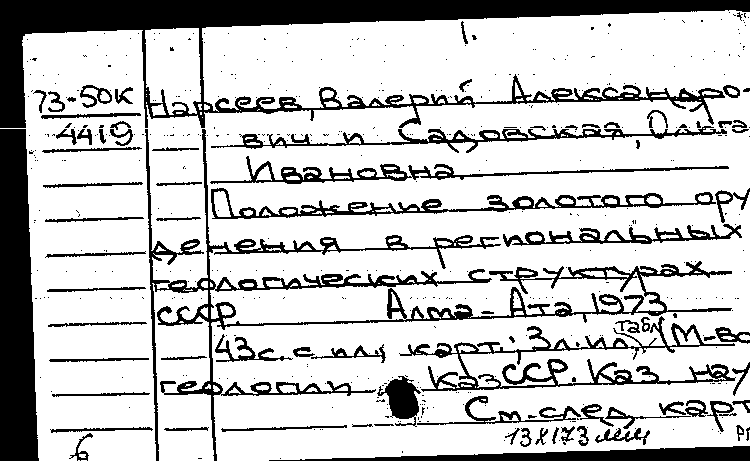 1.
73-50К Нарсеев, Валерий Александро-
4419 вич и Садовская, Ольга
Ивановна.
Положение золотого ору
денения в региональных
геологических структурах
СССР. Алма-Ата, 1973.
43с. с ил., карт.; 3л. ил., табл. (М-во
геологии КазССР. Каз. нау
См. след. карт
6 13х173 мм